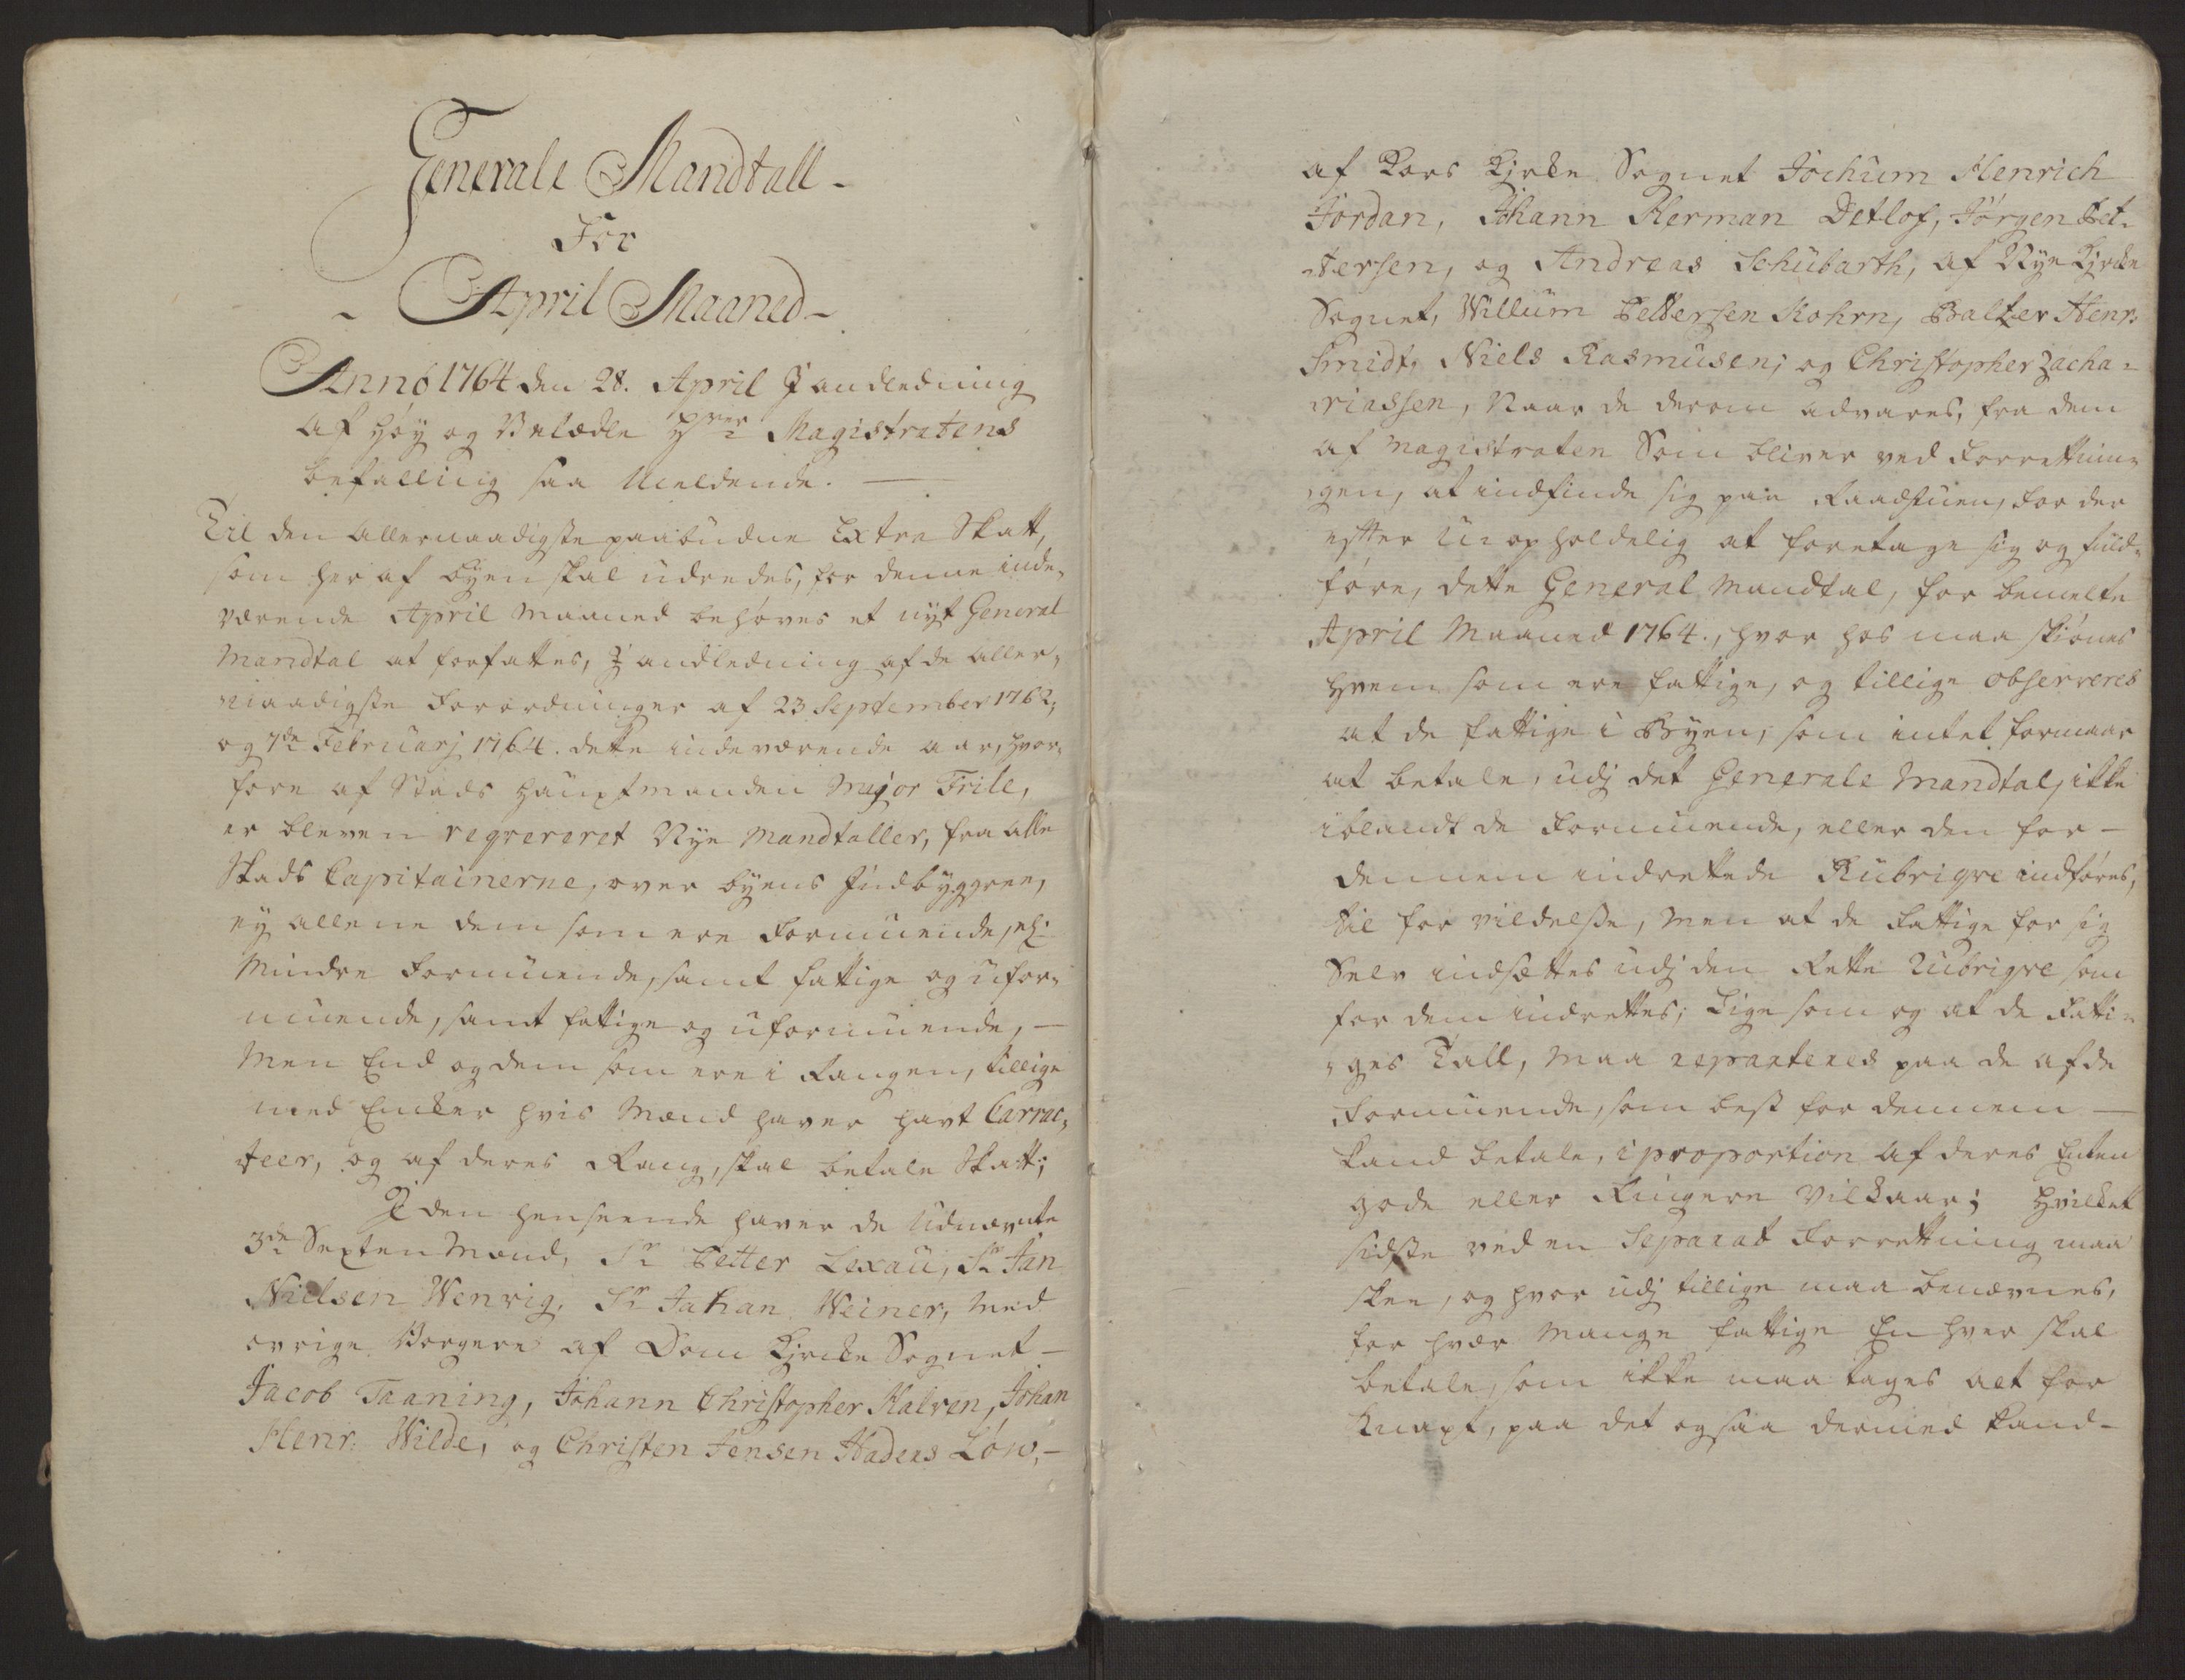 Generale Mandtall-
For
- April Maaned -
Anno 1764 den 28. April I andledning
af Høy og Velædle Hrrr Magistratens
befalling saa Meldende. —
Til den allernaadigste paabudne Extra Skatt,
som her af Byen skal udredes, for denne inde-
værende April Maaned behøves et nyt General
Mandtal at forfattes, I andledning af de aller-
naadigste Forordninger af 23 September 1762,
og 7de Februarj 1764. dette indeværende aar, hvor-
fore af Stads Hauptmanden Major Friile,
er bleven reqvereret Nye Mandtaller, fra alle
Stads Capitainerne, over byens Indbyggere,
ey allene dem som ere Formuende, eller
Mindre Formuende, samt fattige og ufor-
muende, samt fattige og uformuende, —
Men End og dem som ere i Rangen, tillige
med Encker hvis Mænd haver havt Carrac-
teer, og af deres Rang, skal betale Skatt;
I den henseende haver de Udnævnte
3de Sexten Mænd, Sr Petter Lexau, Sr Jan
Nielsen Wenrig, Sr Johan Weiner, Med
øvrige Borgere af Dom Kircke Sognet —
Jacob Taaning, Johann Christopher Kalven, Johan
Henr: Wilde, og Christen Jensen Haders Løw, —
af Kors Kircke Sognet Jochum Henrich
Jordan, Johann Herman Detlof, Jørgen Pet-
tersen, og Andreas Schubarth, af Nye Kircke
Sognet, Willum Pettersen Kohrn, Baltzer Henr:
Smidt, Niels Rasmusen; og Christopher Zacha-
riassen, Naar de derom advares, fra dem
af Magistraten Som bliver ved Forrettnin-
gen, at indfinde sig paa Raadstuen, for der
efter Unopholdelig at foretage sig og fuld-
føre, dette General Mandtal, for bemelte
April Maaned 1764., hvor hos maa skiønes
hvem som ere fattige, og tillige observeres
at de fattige i Byen, som intet formaar
at betale, udj det Generale Mandtal, ikke
iblandt de Formuende, eller den for —
dennem indrettede Rubriqve indføres,
til forvildelse, Men at de Fattige for sig
Selv indsættes udj den Rette Rubriqve som
for dem indrettes; Lige som og at de Fatti-
ges Tall, Maa reparteres paa de af de
Formuende, som best for dennem —
kand betale, i proportion af deres Enten
gode eller Ringere Vilkaar; Hvilket
sidste ved en Separat Forrettning maa
skee, og hvor udj tillige maa benævnes,
for hvor Mange fattige En hver skal
betale, som ikke maa tages alt for
knapt, paa det ogsaa dermed kand-